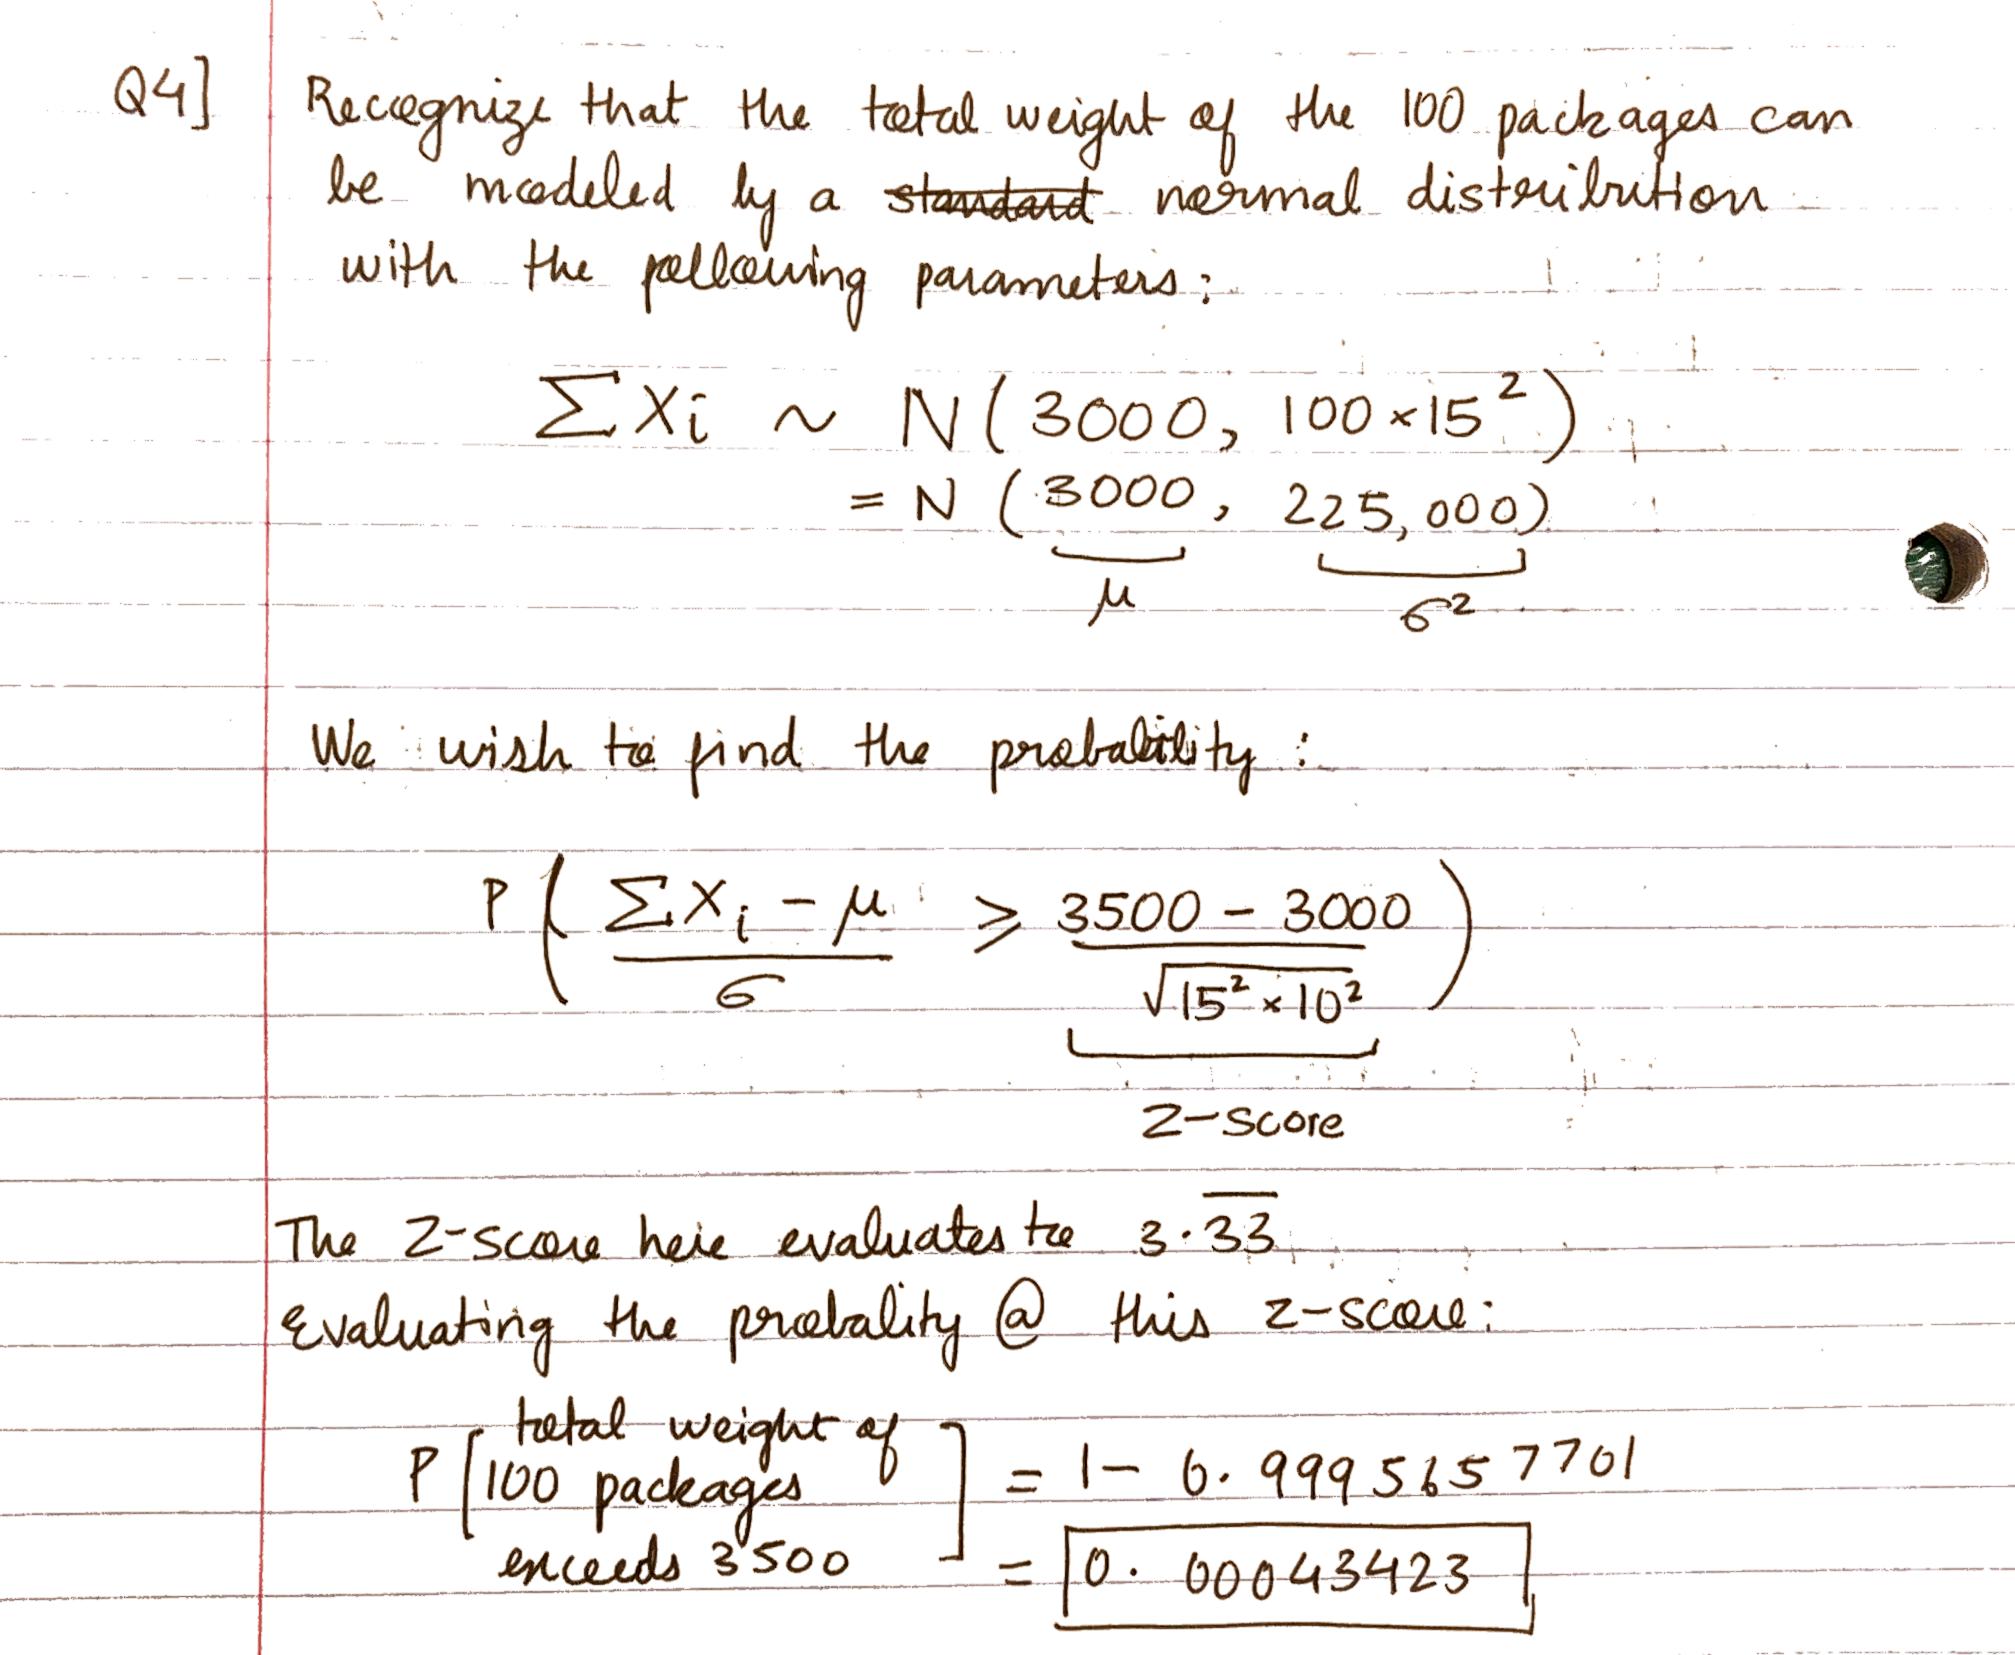 Q4] Recognize that the total weight of the 100 packages can
be modeled by a ~~standard~~ normal distribution
with the following parameters:
∑Xi ~ N(3000, 100×15²)
= N (3000, 225,000)
μ σ²
We wish to find the probability:
P(∑Xi - μ / σ ≥ 3500 - 3000 / √15² × 10²)
Z-score
The Z-score here evaluates to 3.3̅3̅
Evaluating the probality @ this z-score:
P[total weight of
100 packages
exceeds 3500] = 1 - 0.9995657701
= 0.00043423